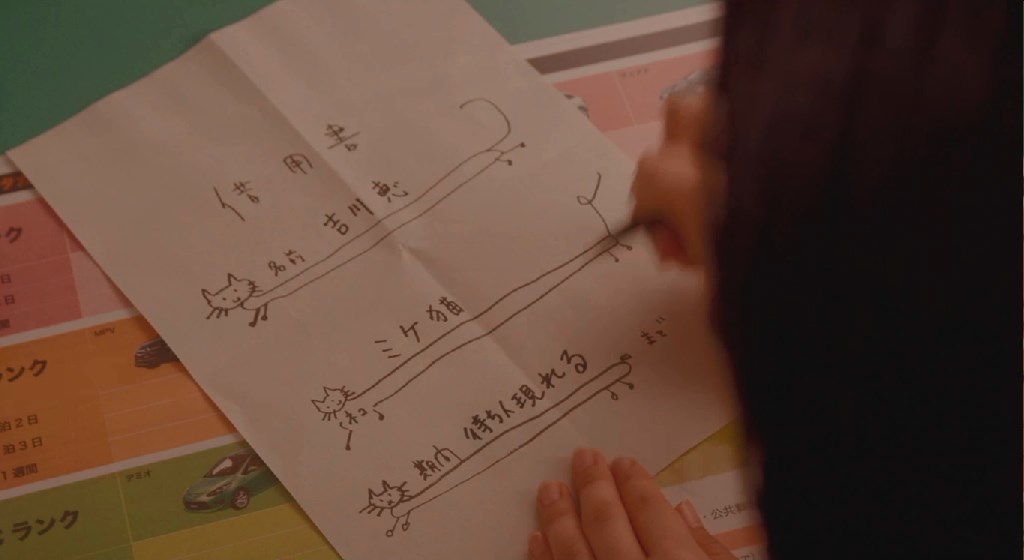 借用書
名前 吉川 恵
ミケ猫
ネコ
期内 待ち人現れる まで
ク
日
日
間
MPV
ンク
泊2日
泊3日
1週間
デミオ
ランク
・公共